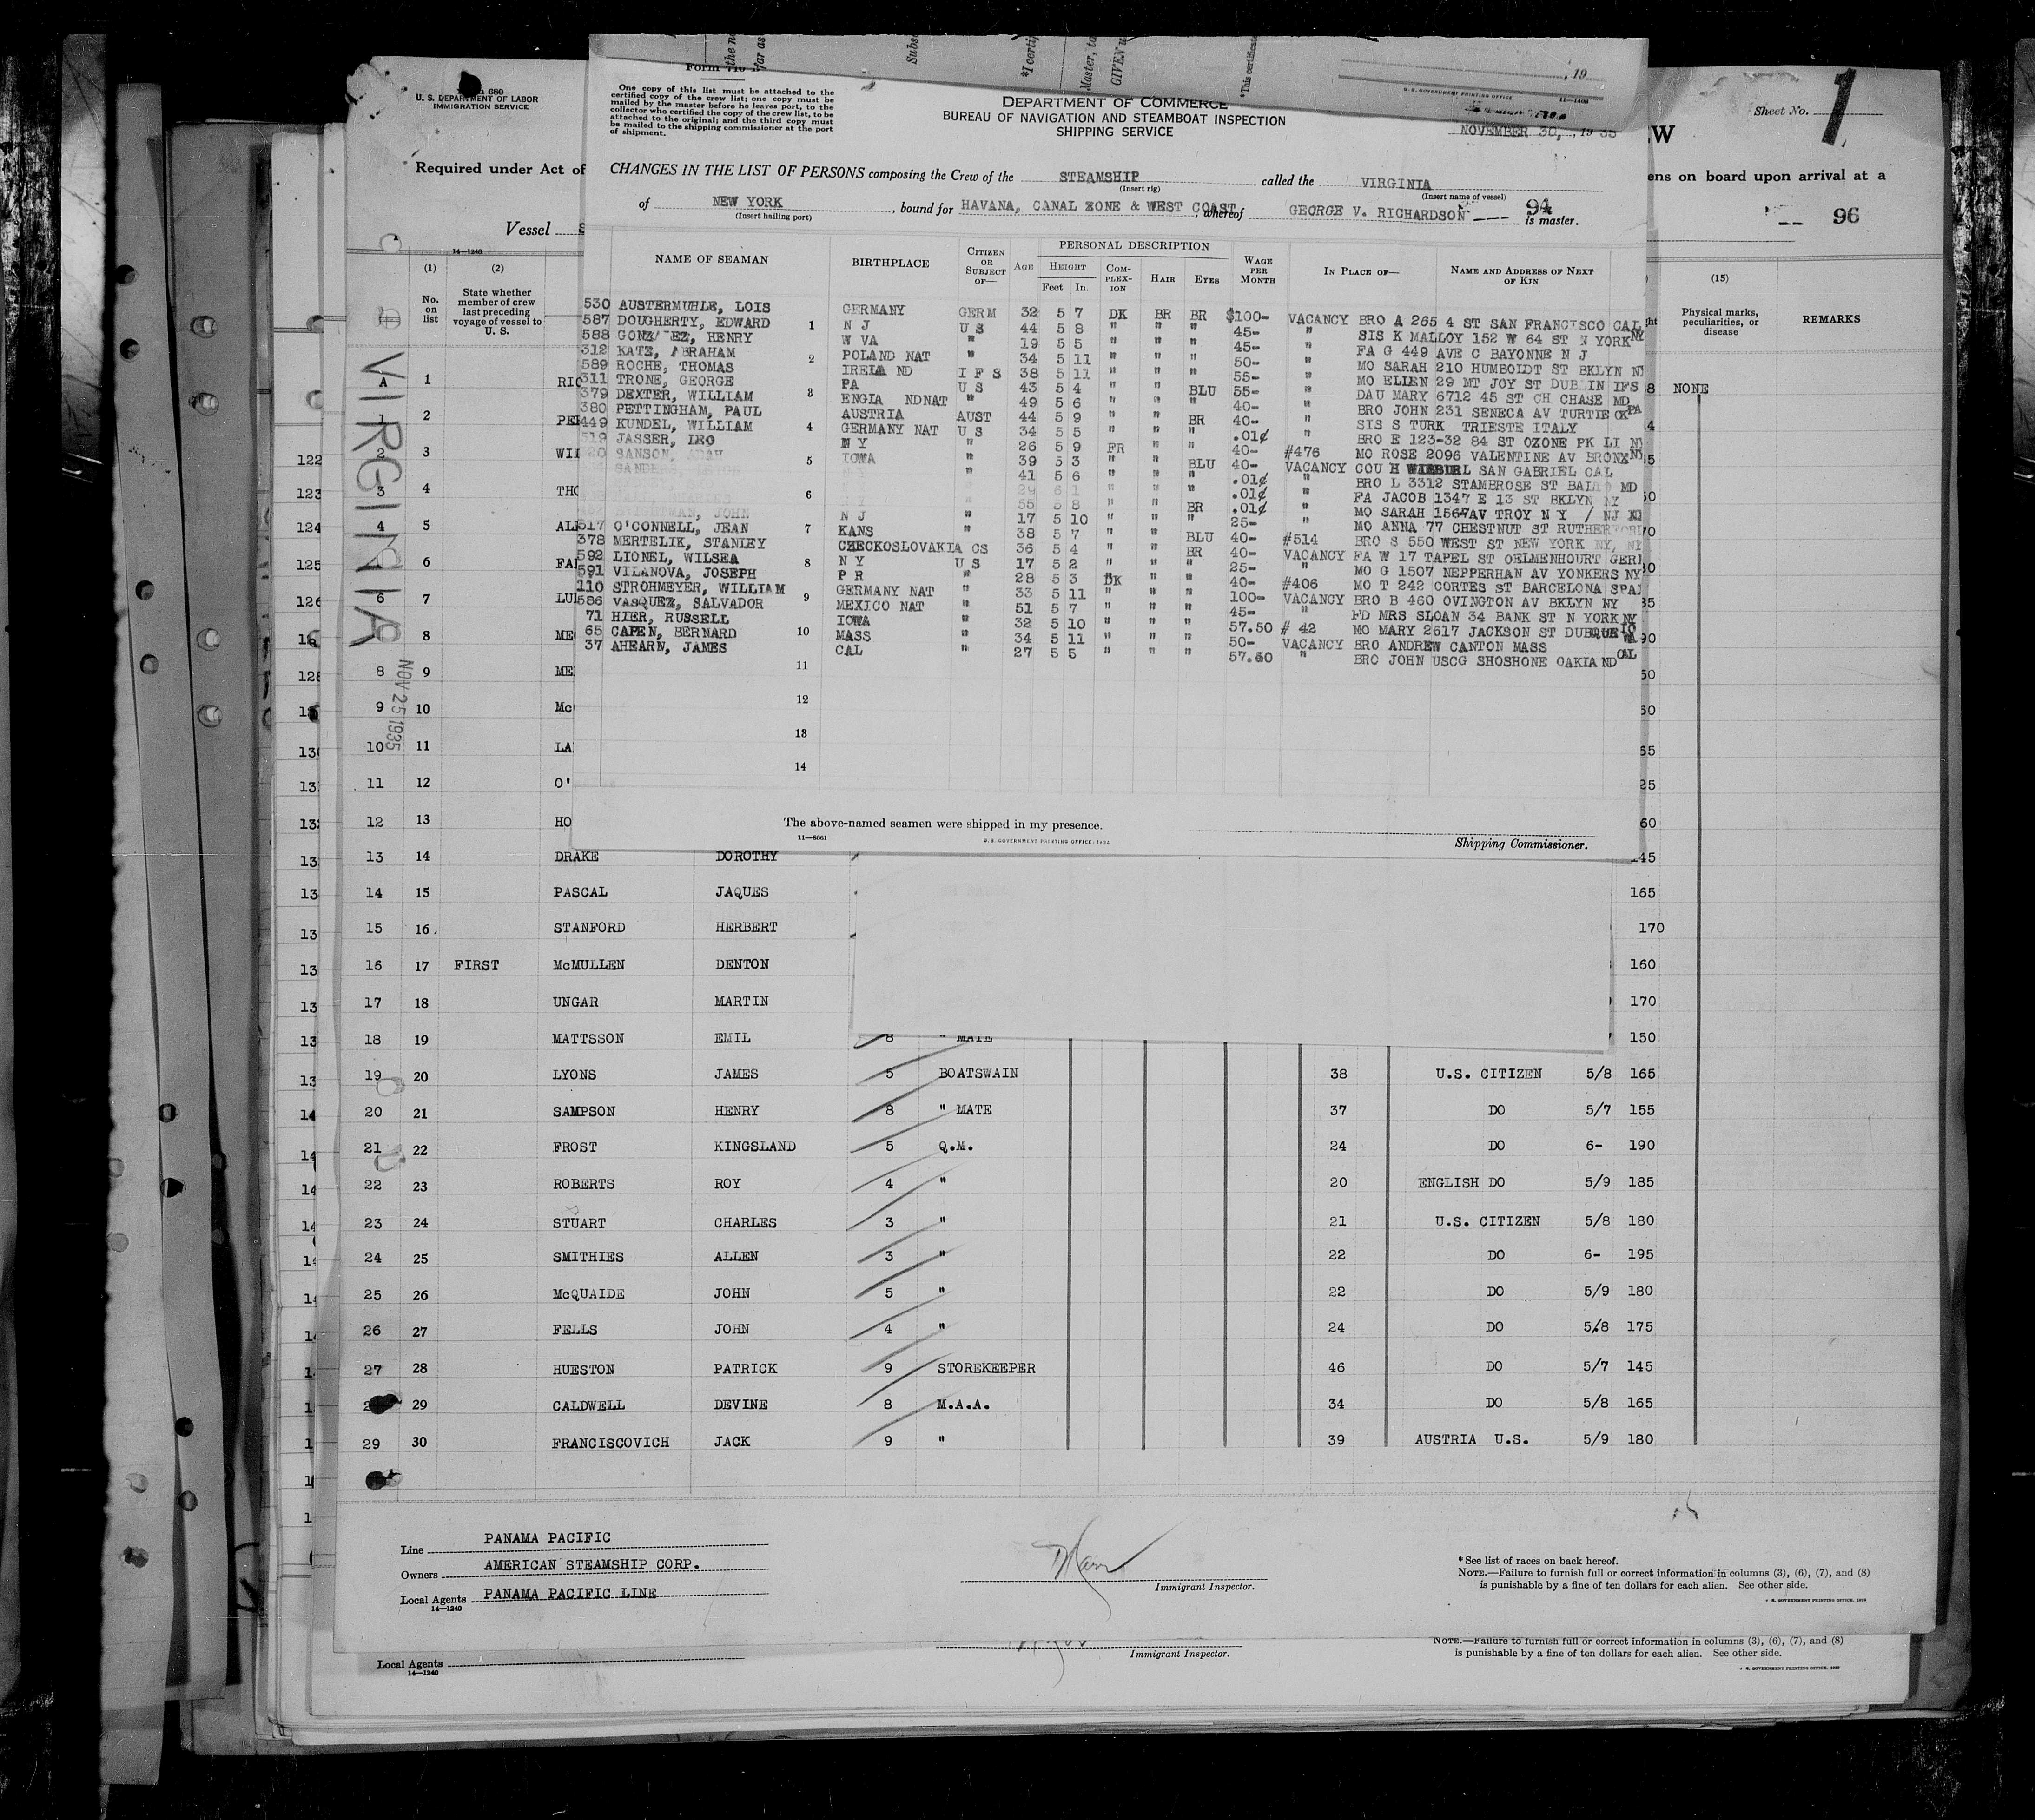 Form 710
the n
far as
Subs
*I certify
Master, to
GIVEN u
*This certificate
, 19
U. S. GOVERNMENT PRINTING OFFICE 11—1408
680
U. S. DEPARTMENT OF LABOR
IMMIGRATION SERVICE
Required under Act of
Vessel
14—1240
One copy of this list must be attached to the
certified copy of the crew list; one copy must be
mailed by the master before he leaves port, to the
collector who certified the copy of the crew list, to be
attached to the original; and the third copy must
be mailed to the shipping commissioner at the port
of shipment.
DEPARTMENT OF COMMERCE
BUREAU OF NAVIGATION AND STEAMBOAT INSPECTION
SHIPPING SERVICE
NOVEMBER 30, , 1935
Sheet No. 1
EW
ens on board upon arrival at a
-- 96
CHANGES IN THE LIST OF PERSONS composing the Crew of the STEAMSHIP called the VIRGINIA
(Insert rig) (Insert name of vessel)
of NEW YORK , bound for HAVANA, CANAL ZONE & WEST COAST, whereof GEORGE V. RICHARDSON --- 94 is master.
(Insert hailing port)
NAME OF SEAMAN BIRTHPLACE CITIZEN OR SUBJECT OF— AGE PERSONAL DESCRIPTION HEIGHT Feet In. COM-PLEX-ION HAIR EYES WAGE PER MONTH IN PLACE OF— NAME AND ADDRESS OF NEXT OF KIN
530 AUSTERMUHLE, LOIS GERMANY GERM 32 5 7 DK BR BR $100- VACANCY BRO A 265 4 ST SAN FRANCISCO CAL
587 DOUGHERTY, EDWARD 1 N J U S 44 5 8 " " " 45- " SIS K MALLOY 152 W 64 ST N YORK NY
588 GONZ EZ, HENRY W VA " 19 5 5 " " " 45- " FA G 449 AVE C BAYONNE N J
312 KATZ, ABRAHAM 2 POLAND NAT " 34 5 11 " " " 50- " MO SARAH 210 HUMBOLDT ST BKLYN NY
589 ROCHE, THOMAS IRELA ND I F S 38 5 11 " " " 55- " MO ELLEN 29 MT JOY ST DUBLIN IFS
311 TRONE, GEORGE PA U S 43 5 4 " " BLU 55- " DAU MARY 6712 45 ST CH CHASE MD
379 DEXTER, WILLIAM 3 ENGLA NDNAT " 49 5 6 " " " 40- " BRO JOHN 231 SENECA AV TURTLE CK PA
380 PETTINGHAM, PAUL AUSTRIA AUST 44 5 9 " " BR 40- " SIS S TURK TRIESTE ITALY
449 KUNDEL, WILLIAM 4 GERMANY NAT U S 34 5 5 " " " .01¢ " BRO E 123-32 84 ST OZONE PK LI NY
519 JASSER, LEO N Y " 26 5 9 FR " " 40- #476 MO ROSE 2096 VALENTINE AV BRONX NY
20 SANSON, ADAH 5 IOWA " 39 5 3 " " BLU 40- VACANCY COU H SAN GABRIEL CAL
41 5 6 " " " .01¢ " BRO L 3312 STAMBROSE ST BALTO MD
6 29 6 1 " " " .01¢ " FA JACOB 1347 E 13 ST BKLYN NY
JOHN 55 5 8 " " BR .01¢ " MO SARAH 156 AV TROY N Y
517 O'CONNELL, JEAN 7 N J " 17 5 10 " " " 25- " MO ANNA 77 CHESTNUT ST RUTHERFORD
378 MERTELIK, STANLEY KANS " 38 5 7 " " BLU 40- #514 BRO S 550 WEST ST NEW YORK NY
592 LIONEL, WILSEA 8 CZECKOSLOVAKIA CS 36 5 4 " " BR 40- VACANCY FA W 17 TAPEL ST OELMENHOURT GER
591 VILANOVA, JOSEPH N Y U S 17 5 2 " " " 25- " MO G 1507 NEPPERHAN AV YONKERS NY
110 STROHMEYER, WILLIAM P R " 28 5 3 DK " " 40- #406 MO T 242 CORTES ST BARCELONA SPAI
586 VASQUEZ, SALVADOR 9 GERMANY NAT " 33 5 11 " " " 100- VACANCY BRO B 460 OVINGTON AV BKLYN NY
71 HIER, RUSSELL MEXICO NAT " 51 5 7 " " " 45- " FD MRS SLOAN 34 BANK ST N YORK NY
65 CAPEN, BERNARD 10 IOWA " 32 5 10 " " " 57.50 # 42 MO MARY 2617 JACKSON ST DUBQUE IO
37 AHEARN, JAMES MASS " 34 5 11 " " " 50- VACANCY BRO ANDREW CANTON MASS
11 CAL " 27 5 5 " " " 57.60 " BRO JOHN USCG SHOSHONE OAKLAND CAL
12
13
14
The above-named seamen were shipped in my presence.
11—8661 U.S. GOVERNMENT PRINTING OFFICE: 1934
Shipping Commissioner.
VIRGINIA
NOV 25 1935
(1) (2) (15)
No. on list
State whether member of crew last preceding voyage of vessel to U. S.
Physical marks, peculiarities, or disease
REMARKS
A 1 RIC NONE
1 2 PE
2 3 WI
3 4 THO
4 5 AL
5 6 FA
6 7 LU
8 ME
8 9 ME
9 10 Mc
10 11 LA
11 12 O'
12 13 HO
13 14 DRAKE DOROTHY 145
14 15 PASCAL JAQUES 165
15 16 STANFORD HERBERT 170
16 17 FIRST McMULLEN DENTON 160
17 18 UNGAR MARTIN 170
18 19 MATTSSON EMIL 8 " MATE 150
19 20 LYONS JAMES 5 BOATSWAIN 38 U.S. CITIZEN 5/8 165
20 21 SAMPSON HENRY 8 " MATE 37 DO 5/7 155
21 22 FROST KINGSLAND 5 Q.M. 24 DO 6- 190
22 23 ROBERTS ROY 4 " 20 ENGLISH DO 5/9 185
23 24 STUART CHARLES 3 " 21 U.S. CITIZEN 5/8 180
24 25 SMITHIES ALLEN 3 " 22 DO 6- 195
25 26 McQUAIDE JOHN 5 " 22 DO 5/9 180
26 27 FELLS JOHN 4 " 24 DO 5/8 175
27 28 HUESTON PATRICK 9 STOREKEEPER 46 DO 5/7 145
29 CALDWELL DEVINE 8 M.A.A. 34 DO 5/8 165
29 30 FRANCISCOVICH JACK 9 " 39 AUSTRIA U.S. 5/9 180
Line PANAMA PACIFIC
Owners AMERICAN STEAMSHIP CORP.
Local Agents PANAMA PACIFIC LINE
14—1240
Immigrant Inspector.
*See list of races on back hereof.
NOTE.—Failure to furnish full or correct information in columns (3), (6), (7), and (8)
is punishable by a fine of ten dollars for each alien. See other side.
U. S. GOVERNMENT PRINTING OFFICE, 1929
Local Agents
14—1240
Immigrant Inspector.
NOTE.—Failure to furnish full or correct information in columns (3), (6), (7), and (8)
is punishable by a fine of ten dollars for each alien. See other side.
U. S. GOVERNMENT PRINTING OFFICE, 1929